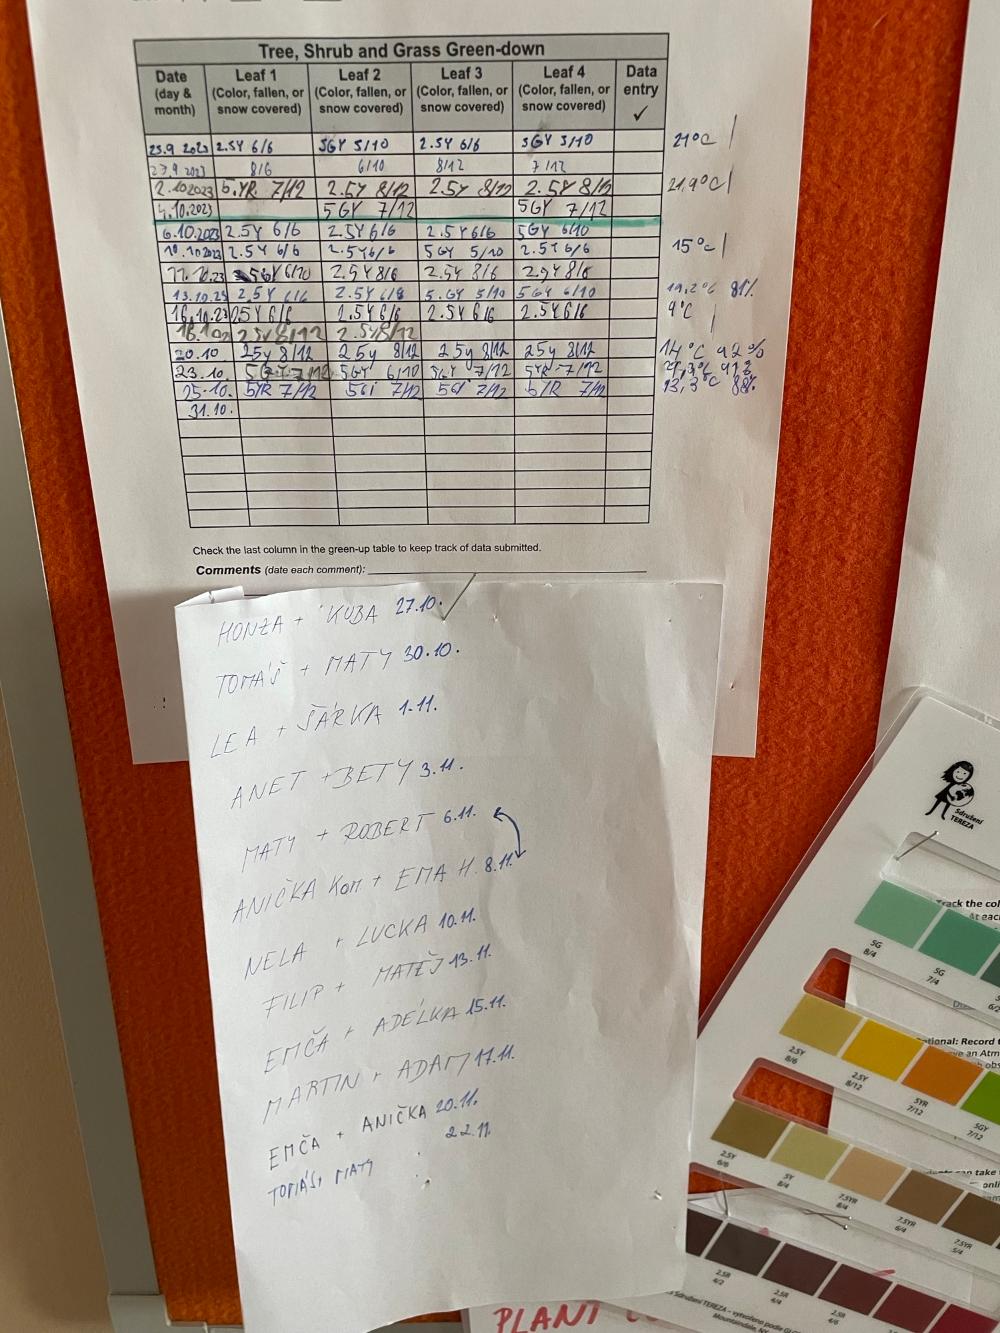 Tree, Shrub and Grass Green-down
Date (day & month) Leaf 1 (Color, fallen, or snow covered) Leaf 2 (Color, fallen, or snow covered) Leaf 3 (Color, fallen, or snow covered) Leaf 4 (Color, fallen, or snow covered) Data entry ✓
25.9 2023 2.5Y 6/6 5GY 5/10 2.5Y 6/6 5GY 5/10 21°C
27.9 2023 8/6 6/10 8/12 7/12
2.10 2023 5.YR 7/12 2.5Y 8/12 2.5Y 8/12 2.5Y 21,9°C
4.10.2023 5GY 7/12 5GY 7/12
6.10.2023 2.5Y 6/6 2.5Y 6/6 2.5Y 6/6 5GY 6/10
10.10.2023 2.5Y 6/6 2.5Y 6/6 5GY 5/10 2.5Y 6/6 15°C
11.10.23 5GY 6/10 2.5Y 8/6 2.5Y 8/6 2.5Y 8/6
13.10.23 2,5Y 6/6 2.5Y 6/8 5.GY 5/10 5GY 6/10 81%
16.10.23 2.5Y 6/6 2.5Y 6/6 2.5Y 6/6 2.5Y 6/6 9°C
2.5Y 8/12 2.5Y 8/12
20.10 2.5Y 8/12 2.5Y 8/12 2.5Y 8/12 2.5Y 8/12 14°C 92%
23.10. 7/12 5GY 6/10 5GY 7/12 5YR 7/12
25.10. 5YR 7/12 5GY 7/12 5GY 7/12 5YR 7/12 13,3°C 88%
31.10.
Check the last column in the green-up table to keep track of data submitted.
Comments (date each comment):
HONZA + KUBA 27.10.
TOMÁŠ + MATY 30.10.
LEA + ŠÁRKA 1.11.
ANET + BETY 3.11.
MATY + ROBERT 6.11.
ANIČKA KOM + EMA H. 8.11.
NELA + LUCKA 10.11.
FILIP + MATĚJ 13.11.
EMČA + ADÉLKA 15.11.
MARTIN + ADAM 17.11.
EMČA + ANIČKA 20.11.
TOMÁŠ, MATY 22.11.
Sdružení
TEREZA
Track the col
At eac
5G 8/4
5G 7/4
Optional: Record t
an Atm
2.5Y 8/6
2.5Y 8/12
5YR 7/12
5GY 7/12
can take
onli
2.5Y 6/6
5Y 8/4
7.5YR 8/4
7.5YR 6/4
7.5YR 5/4
2.5R 4/2
2.5R 4/4
2.5R 4/6
Sdružení TEREZA – vytvořeno podle GL
Mountaindale, NY
PLANT